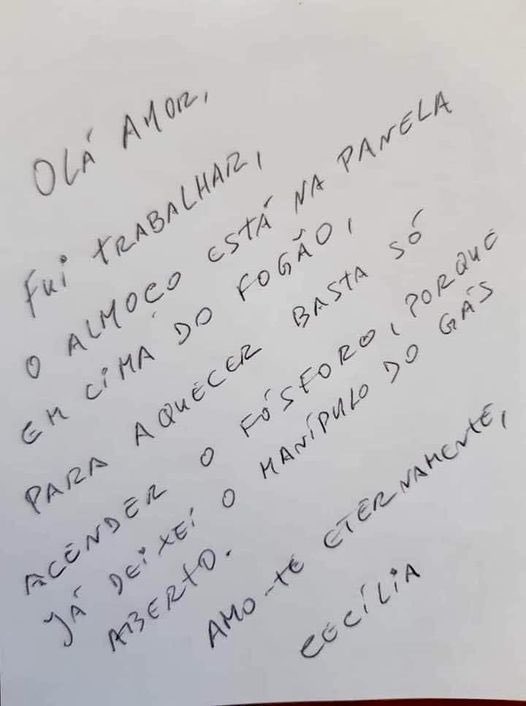 OLÁ AMOR,
FUI TRABALHAR,
O ALMOÇO ESTÁ NA PANELA
EM CIMA DO FOGÃO,
PARA AQUECER BASTA SÓ
ACENDER O FÓSFORO, PORQUE
JÁ DEIXEI O MANÍPULO DO GÁS
ABERTO.
AMO-TE ETERNAMENTE,
CECÍLIA